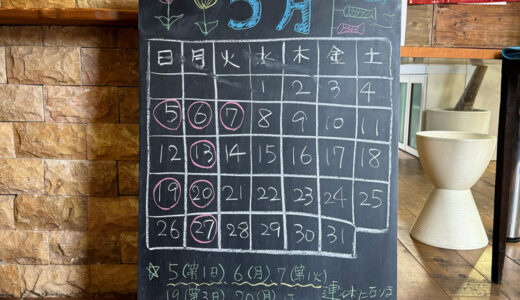 5月
日 月 火 水 木 金 土
1 2 3 4
5 6 7 8 9 10 11
12 13 14 15 16 17 18
19 20 21 22 23 24 25
26 27 28 29 30 31
☆ 5(第1日) 6(月) 7(第1火)
19(第3日) 20(月)
連休になります